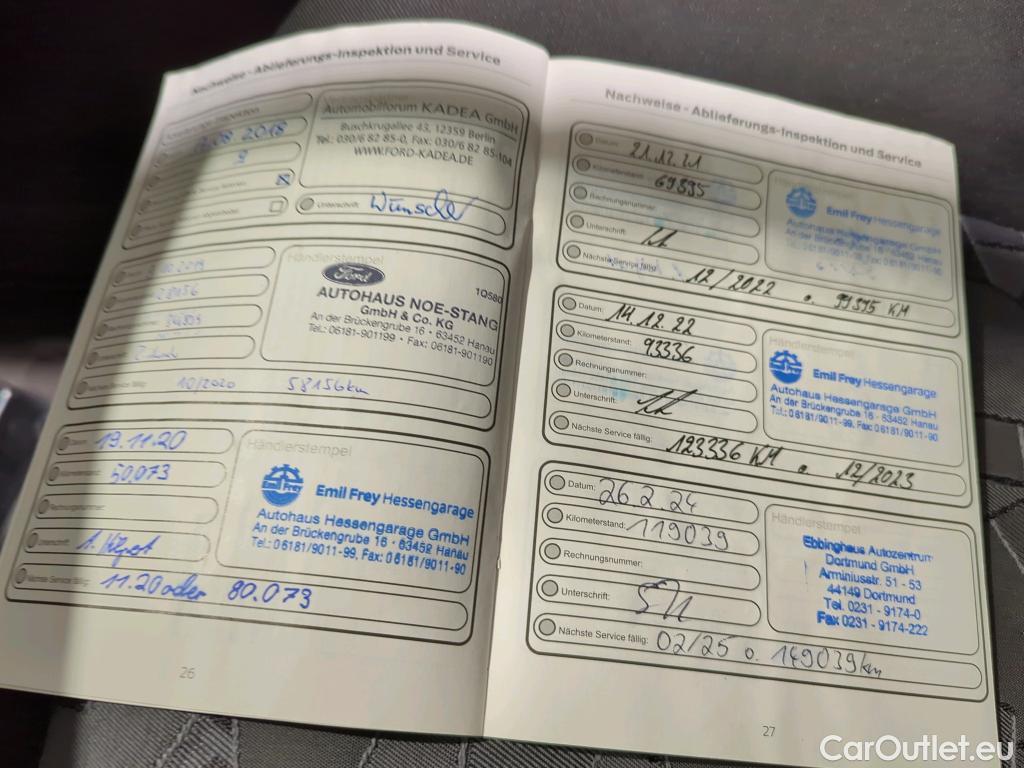 Nachweise - Ablieferungs-Inspektion und Service
Automobilforum KADEA GmbH
Buschkrugallee 43, 12359 Berlin
Tel.: 030/6 82 85-0, Fax: 030/6 82 85-104
WWW.FORD-KADEA.DE
08 2018
Unterschrift:
Händlerstempel
Ford
1Q580
AUTOHAUS NOE-STANG
GmbH & Co. KG
An der Brückengrube 16 · 63452 Hanau
Tel.: 06181-901199 · Fax: 06181-901190
28156
Nächste Service fällig:
10/2020 58156km
Datum:
19.11.20
Kilometerstand:
50.073
Rechnungsnummer:
Unterschrift:
Nächste Service fällig:
11.20 oder 80.073
Händlerstempel
Emil Frey
Emil Frey Hessengarage
Autohaus Hessengarage GmbH
An der Brückengrube 16 · 63452 Hanau
Tel.: 0 6181/9011-99, Fax: 0 6181/9011-90
26
Nachweise - Ablieferungs-Inspektion und Service
Datum: 21.12.21
Kilometerstand: 69395
Rechnungsnummer:
Unterschrift:
Nächste Service fällig:
12/2022 o. 99395 KM
Emil Frey Hessengarage
Autohaus Hessengarage GmbH
An der Brückengrube 16 · 63452 Hanau
Tel.: 0 6181/9011-99, Fax: 0 6181/9011-90
Datum: 14.12.22
Kilometerstand: 93336
Rechnungsnummer:
Unterschrift:
Nächste Service fällig: 123336 KM o 12/2023
Händlerstempel
Emil Frey Hessengarage
Autohaus Hessengarage GmbH
An der Brückengrube 16 · 63452 Hanau
Tel.: 0 6181/9011-99, Fax: 0 6181/9011-90
Datum: 26.2.24
Kilometerstand: 119039
Rechnungsnummer:
Unterschrift:
Nächste Service fällig: 02/25 o. 149039km
Händlerstempel
Ebbinghaus Autozentrum
Dortmund GmbH
Arminiusstr. 51 - 53
44149 Dortmund
Tel. 0231 - 9174-0
Fax 0231 - 9174-222
27
CarOutlet.eu